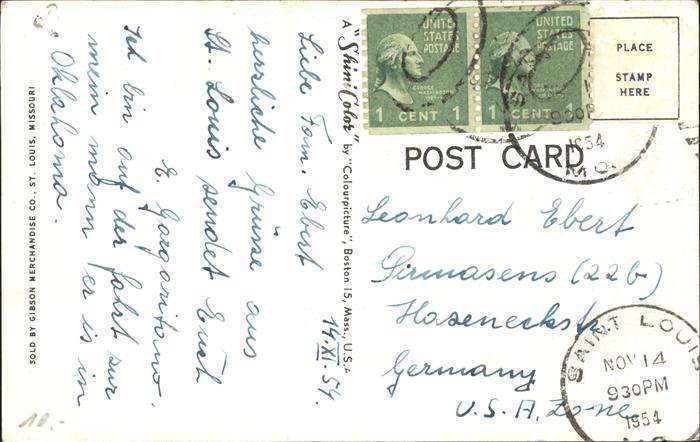 14.XI.54.
Liebe Fam. Ebert
herzliche Grüsse aus
St. Louis sendet Euch
E. Gargaritano.
Ich bin auf der fahrt zur
mein mann er is in
Oklahoma.
10.-
SOLD BY GIBSON MERCHANDISE CO., ST. LOUIS, MISSOURI
A "Shini-Color" by "Colourpicture", Boston 15, Mass., U.S.A.
UNITED STATES POSTAGE
GEORGE WASHINGTON
1 CENT 1
UNITED STATES POSTAGE
1 CENT 1
PLACE
STAMP
HERE
1954
MO.
POST CARD
Leonhard Ebert
Pirmasens (22b)
Haseneckstr.
Germany
U.S.A. Zone
SAINT LOUIS
NOV 14
930PM
1954